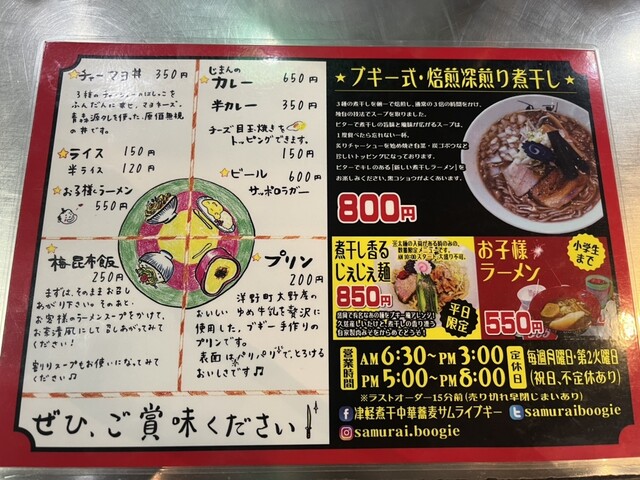 ★チャーマヨ丼 350円
3種のチャーシューのはしっこを
ふんだんに
青森源タレを使った、原価無視
の丼です。
★ライス 150円
半ライス 120円
★お子様ラーメン
550円
★じまんの
カレー 650円
半カレー 350円
チーズ目玉焼きを
トッピングできます。
150円
★ビール 600円
サッポロラガー
★梅昆布飯
250円
まずは、そのままお召し
あがり下さい。そのあと、
お客様のラーメンスープをかけて、
お茶漬風にして召しあがってみて
ください!
割りスープもお使いになってみて
ください♪
★プリン
200円
洋野町大野産の
おいしい ゆめ牛乳を贅沢に
使用した、ブギー手作りの
プリンです。
表面はパリパリで、とろける
おいしさです♫
ぜひ、ご賞味ください
★ブギー式・焙煎深煎り煮干し★
3種の煮干しを瞬一で焙煎し、通常の3倍の時間をかけ、
独自の技法でスープを取りました。
ビターで煮干しの旨味と風味が広がるスープは、
1度食べたら忘れない一杯。
炙りチャーシューを始め焼き白菜・豚ゴボウなど
珍しいトッピングになっております。
ビターでキレのある「新しい煮干しラーメン」を
お楽しみください。黒コショウがよくあいます。
800円
煮干し香る
じぇじぇ麺
850円
平日
限定
お子様
ラーメン
小学生
まで
550円
営業時間
AM6:30~PM3:00
PM5:00~PM8:00
定休日
毎週月曜日・第2火曜日
(祝日、不定休あり)
※ラストオーダー15分前(売り切れ早閉じまいあり)
津軽煮干中華蕎麦サムライブギー samuraiboogie
samurai.boogie